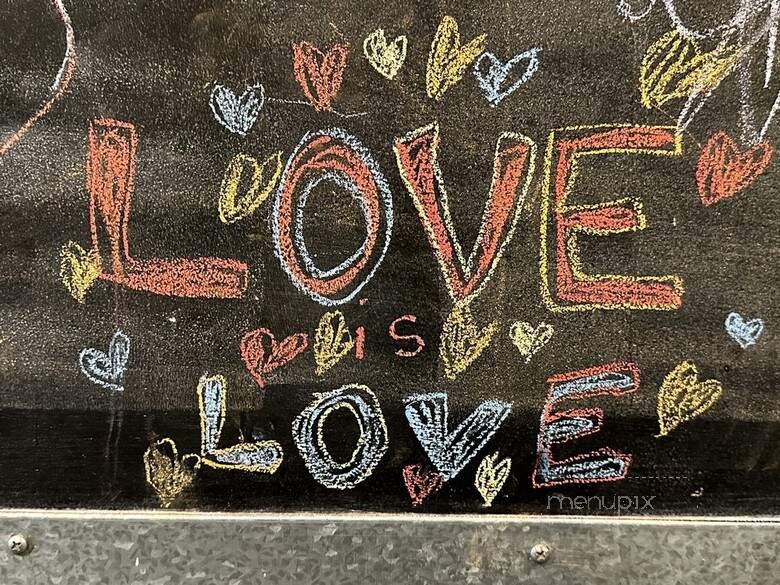 LOVE
is
LOVE
menupix